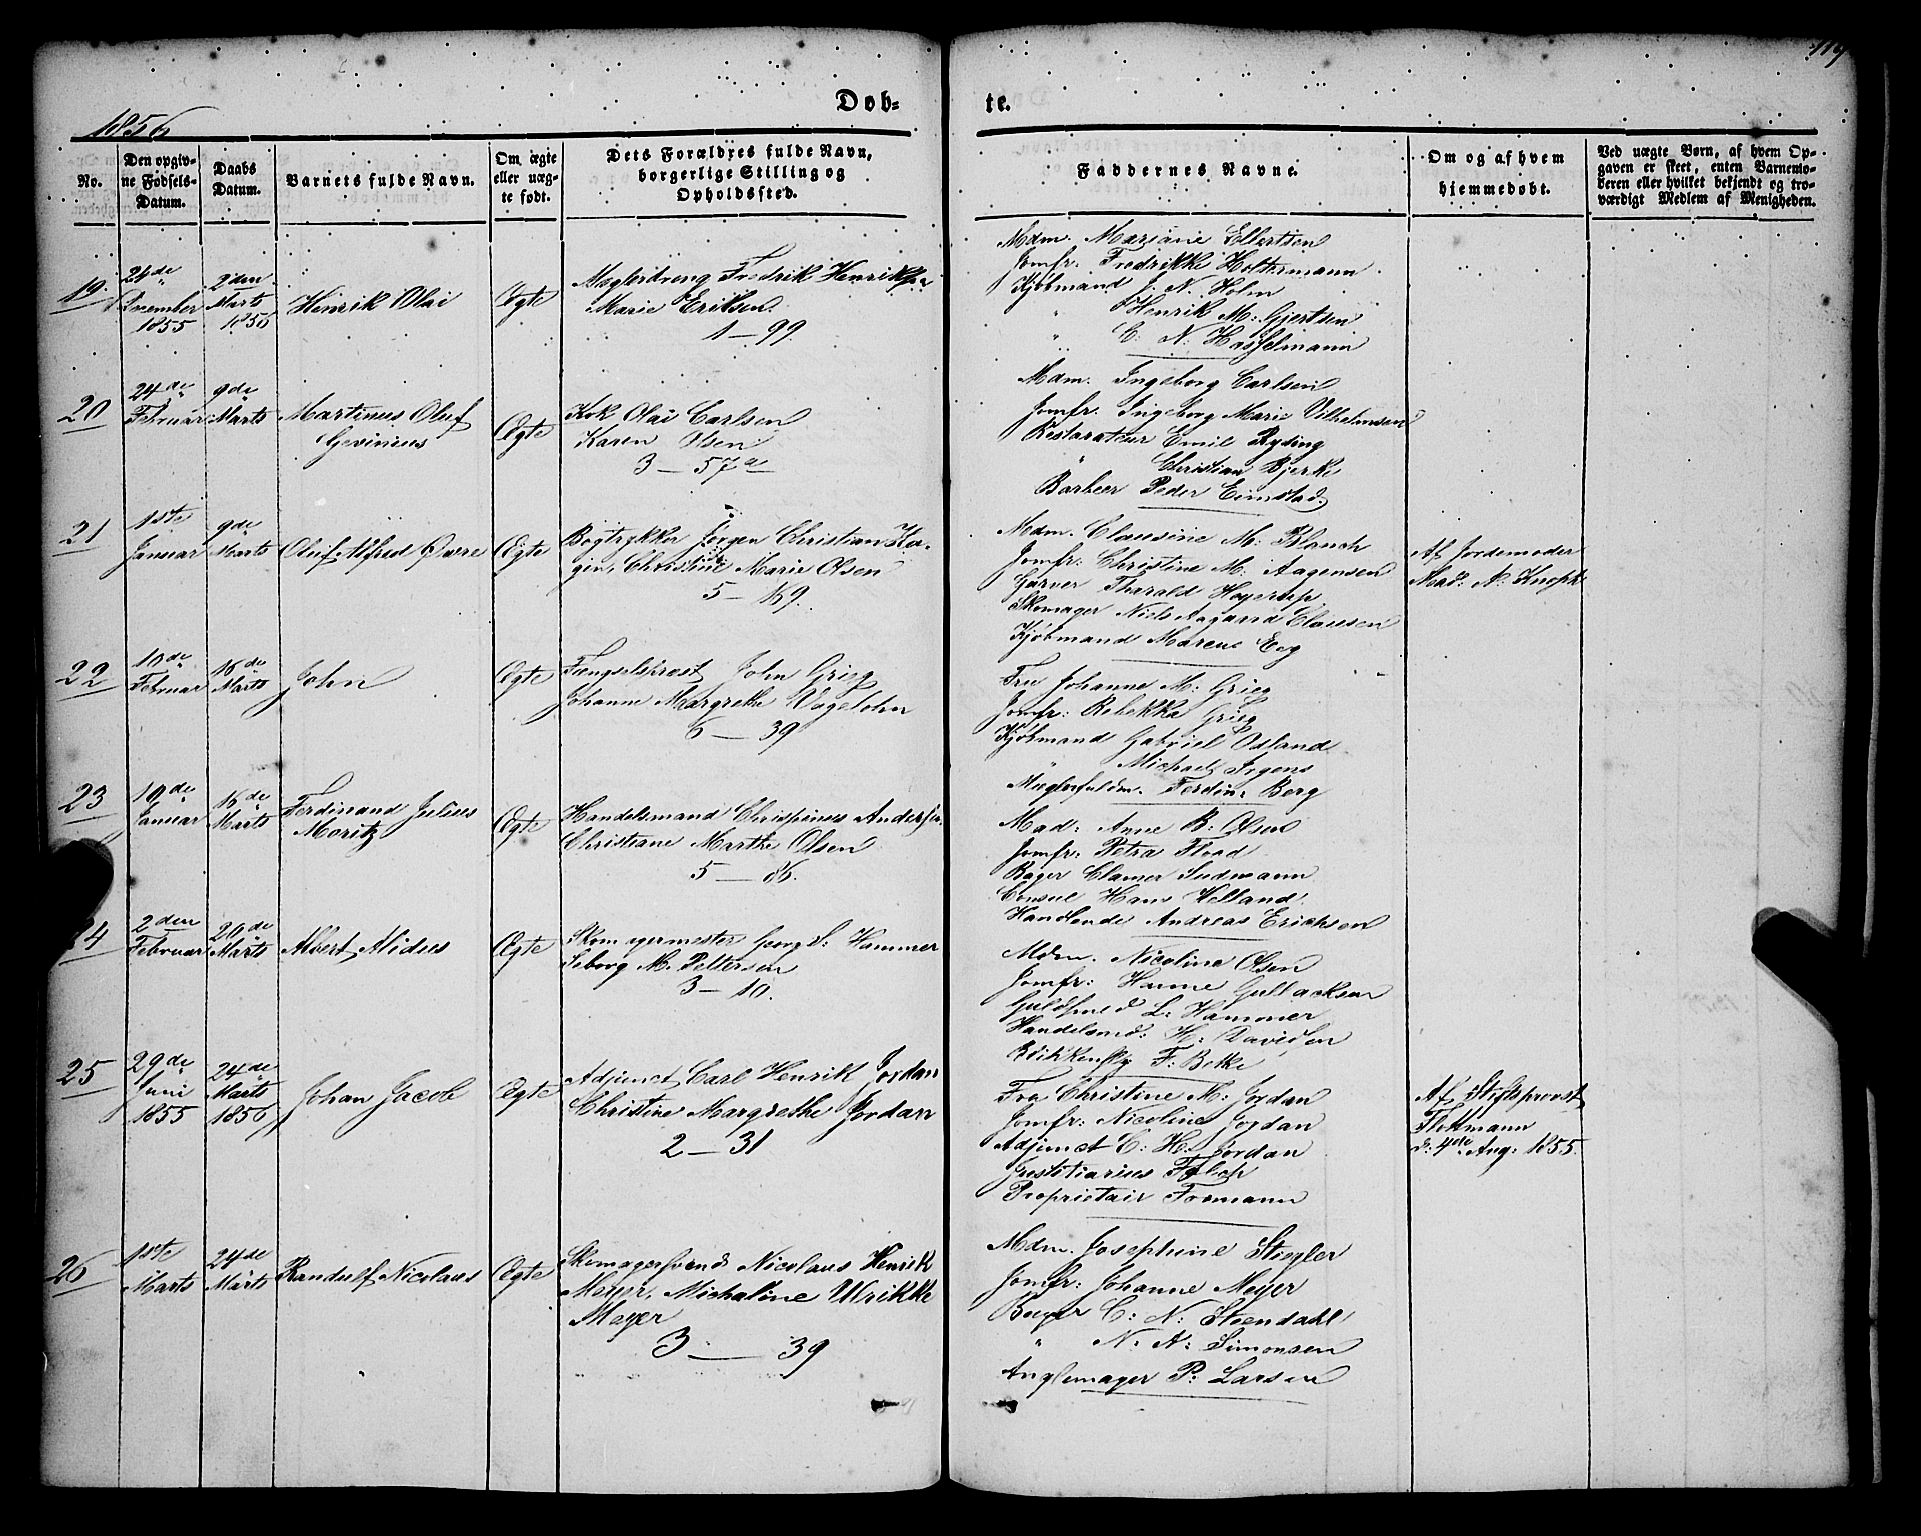 119
1856
Døb-
te.
No.
Den opgiv-
ne Fødsels-
Datum.
Daabs
Datum.
Barnets fulde Navn.
Om ægte
eller uæg-
te født.
Dets Forældres fulde Navn,
borgerlige Stilling og
Opholdssted.
Faddernes Navne.
Om og af hvem
hjemmedøbt.
Ved uægte Børn, af hvem Op-
gaven er skeet, enten Barnemo-
deren eller hvilket bekjendt og tro-
værdigt Medlem af Menigheden.
19
de
December
1855
2den
Marts
1856
Henrik Olai
Ægte
Mæglerdreng Fredrik Henriksen
Marie Eriksen
1 — 99.
Mdm. Mariane Ellertsen
Jomfr. Fredrikke Holtermann
Kjøbmand J. N. Holm
" Henrik M: Gjertsen
" C: N: Hasselmann
20
24de
Februar
9de
Marts
Martinus Oluf
Gevinius
Ægte
Kok Olai Carlsen
Karen Olsen
3 — 57a
Mdm. Ingeborg Carlsen
Jomfr. Ingeborg Marie Vilhelmsen
Restarateur Emil Ryding
" Christian Bjerke
Barbeer Peder Eimstad
21
1ste
Januar
9de
Marts
Oluf Alfred Øvre
Ægte
Bogtrykker Jørgen Christian Ka-
gin, Christine Marie Olsen
5 — 169.
Mdm. Clausine M: Blanch
Jomfr: Christine M: Aagensen
Garver Tharald Høyerup
Skomager Niels Aagaard Clausen
Kjøbmand Marcus Eeg
Af Jordemoder
Mad: N: Knoph
22
10de
Februar
16de
Marts
John
Ægte
Fængselsprest John Grieg
Johanne Margrethe Vogelohn
6 — 39
Fru Johanne M: Grieg
Jomfr: Rebekka Grieg
Kjøbmand Gabriel Osland
" Michael Irgens
Mæglerfuldm. Ferdin: Berg
23
10de
Januar
16de
Marts
Ferdinand Julius
Moritz
Ægte
Handelsmand Chrispinus Andersen
Christiane Marthe Olsen
5 — 86.
Mad: Anne B: Olsen
Jomfr: Petra Flood
Bager Clamer Sudmann
Consul Hans Helland
Handlende Andreas Erichsen
24
2den
Februar
20de
Marts
Albert Alidius
Ægte
Skomagermester Georg S: Hammer
Seborg M. Pettersen
3 — 10.
Mdm. Nicoline Olsen
Jomfr: Hanne Gullacksen
Guldsmed L: Hammer
Handelsmd: H: Davidsen
Blikkensl. F: Behe
25
29de
Juni
1855
24de
Marts
1856
Johan Jacob
Ægte
Adjunct Carl Henrik Jordan
Christine Margrethe Jordan
2 — 31
Fru Christine M: Jordan
Jomfr: Nicoline Jordan
Adjunct C: H: Jordan
Justitiarius Falch
Proprietair Formann
Af Stiftsprovst
Flottmann
d: 4de Aug: 1855.
26
1ste
Marts
24de
Marts
Randulf Nicolaus
Ægte
Skomagersvend Nicolaus Henrik
Meyer, Michaline Ulrikke
Mayer
3 — 39
Mdm. Josephine Stiegler
Jomfr: Johanne Meyer
Bager C: N: Steendahl
" N: N: Simonsen
Anglemager P: Larsen